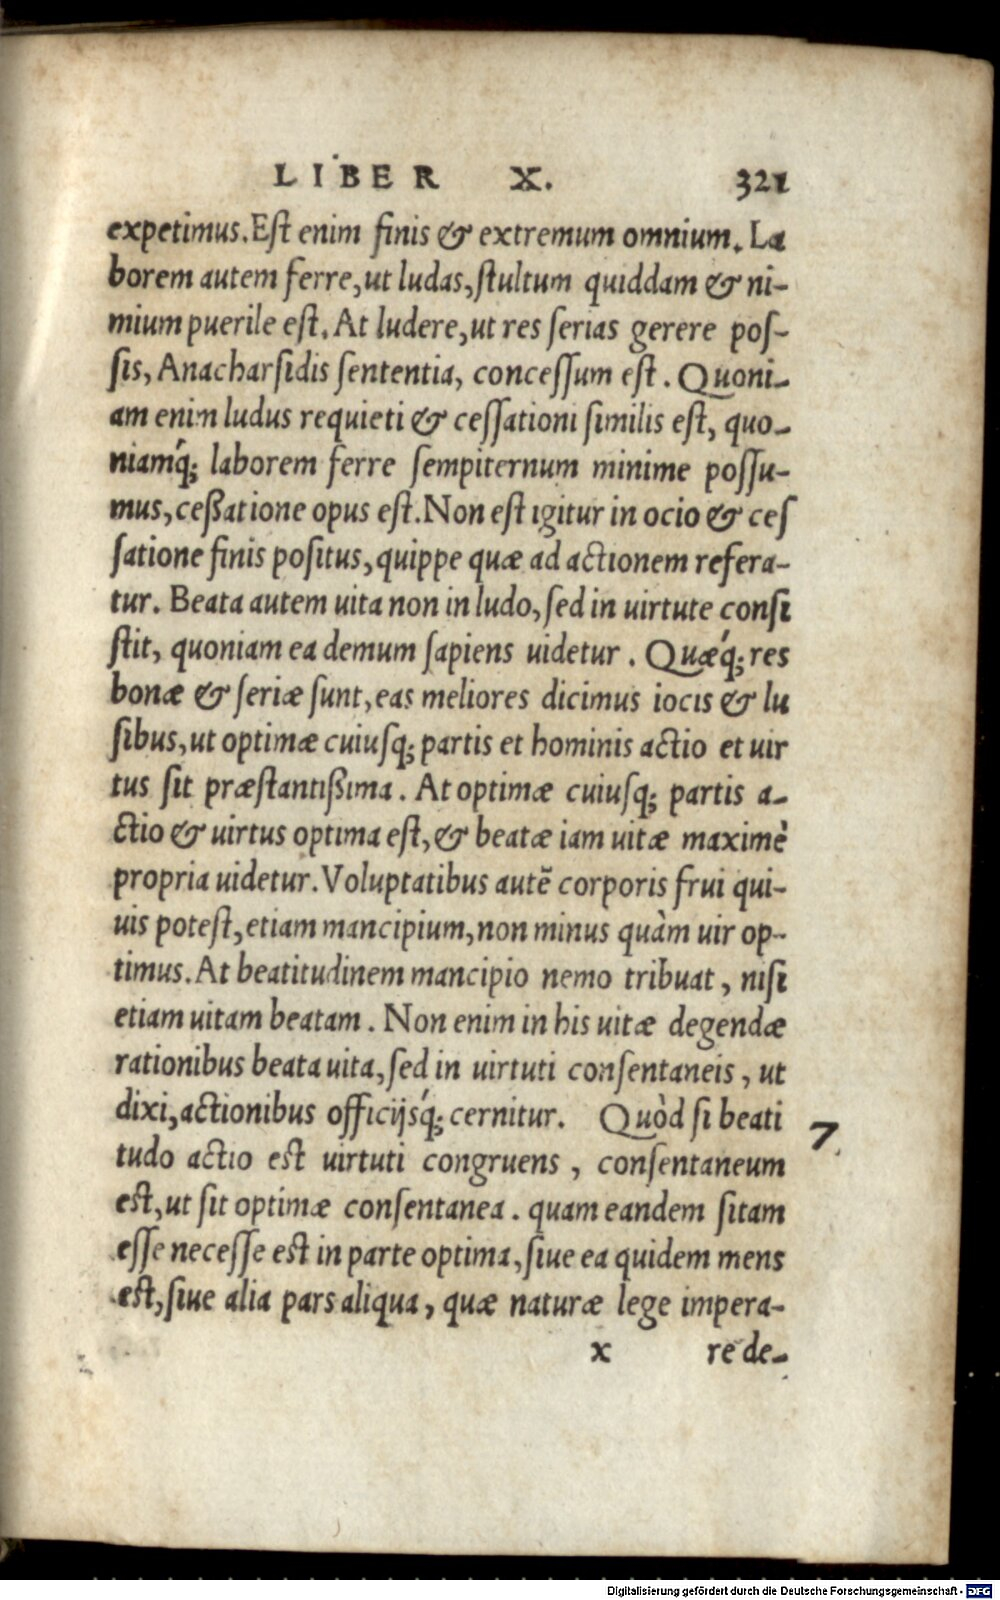 LIBER X. 321
expetimus. Est enim finis & extremum omnium. La
borem autem ferre, ut ludas, stultum quiddam & ni-
mium puerile est. At ludere, ut res serias gerere pos-
sis, Anacharsidis sententia, concessum est. Quoni-
am enim ludus requieti & cessationi similis est, quo-
niamq́; laborem ferre sempiternum minime possu-
mus, ceßatione opus est. Non est igitur in ocio & ces
satione finis positus, quippe quæ ad actionem refera-
tur. Beata autem uita non in ludo, sed in uirtute consi
stit, quoniam ea demum sapiens uidetur. Quæq́; res
bonæ & seriæ sunt, eas meliores dicimus iocis & lu
sibus, ut optimæ cuiusq; partis et hominis actio et uir
tus sit præstantißima. At optimæ cuiusq; partis a-
ctio & uirtus optima est, & beatæ iam uitæ maximè
propria uidetur. Voluptatibus autē corporis frui qui-
uis potest, etiam mancipium, non minus quàm uir op-
timus. At beatitudinem mancipio nemo tribuat, nisi
etiam uitam beatam. Non enim in his uitæ degendæ
rationibus beata uita, sed in uirtuti consentaneis, ut
dixi, actionibus officijsq́; cernitur. Quòd si beati 7
tudo actio est uirtuti congruens, consentaneum
est, ut sit optimæ consentanea. quam eandem sitam
esse necesse est in parte optima, siue ea quidem mens
est, siue alia pars aliqua, quæ naturæ lege impera-
x re de-
Digitalisierung gefördert durch die Deutsche Forschungsgemeinschaft - DFG